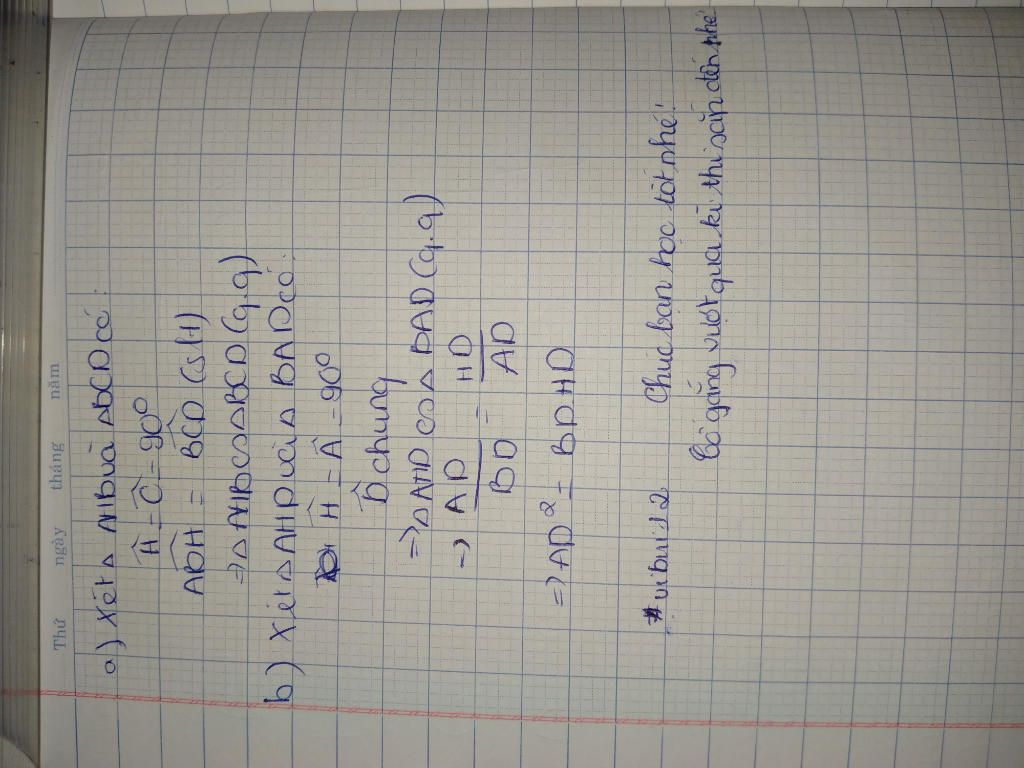 Thứ ngày tháng năm
a) Xét △ AHB và △BCD có:
Ĥ = Ĉ = 90⁰
ADH = BCD (slt)
⇒ △ AHB ∽ △BCD (g.g)
b) Xét △ AHD và △ BAD có:
Ĥ = Â = 90⁰
D̂ chung
⇒ △ AHD ∽ △ BAD (g.g)
→ AD/BD = HD/AD
⇒ AD² = BD HD
# Chúc bạn học tốt nhé!
Cố gắng vượt qua kì thi sắp đến nhé!